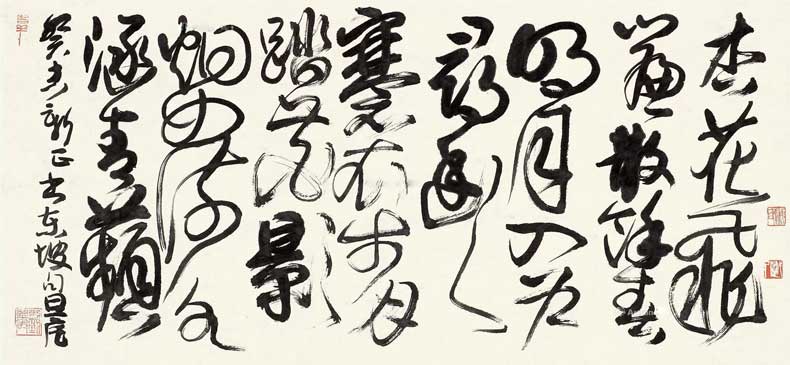 杏花飛
簾散餘春
明月入戶
尋幽人
褰衣步月
踏花影
炯如流水
涵青蘋
癸亥新正书东坡句